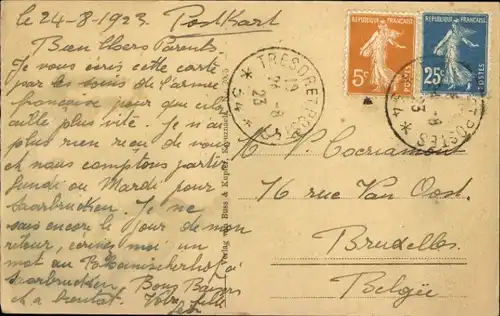 le 24-8-1923. Postkart
Bien chers Parents.
Je vous écris cette carte
par les soins de l'armée
française pour que cela
aille plus vite. Je n'ai
plus rien reçu de vous
et nous comptons partir
Lundi ou Mardi pour
Saarbrucken. Je ne
sais encore le jour de mon
retour, écrivez moi un
mot au
Saarbrucken. Bons Baisers
et à bientôt. Votre fille
Verlag von Buss & Kupfer,
REPUBLIQUE FRANÇAISE
5c
REPUBLIQUE FRANÇAISE
25c
POSTES
TRESOR ET POSTES
* 54 *
24-8
23
Cocriamont
76 rue Van Oost.
Bruxelles.
Belgïe